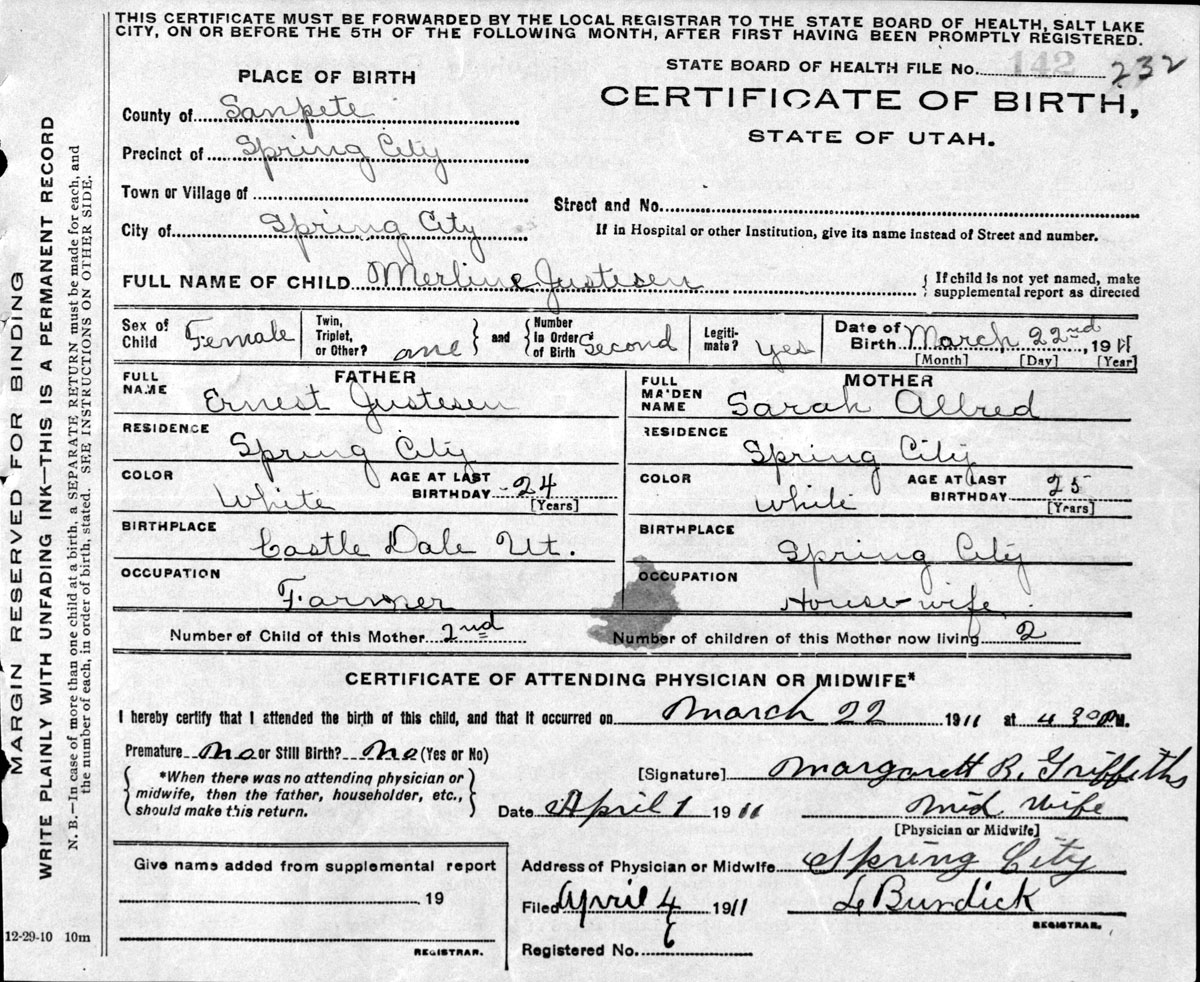 THIS CERTIFICATE MUST BE FORWARDED BY THE LOCAL REGISTRAR TO THE STATE BOARD OF HEALTH, SALT LAKE
CITY, ON OR BEFORE THE 5TH OF THE FOLLOWING MONTH, AFTER FIRST HAVING BEEN PROMPTLY REGISTERED.
PLACE OF BIRTH
STATE BOARD OF HEALTH FILE No. 142 232
County of Sanpete
CERTIFICATE OF BIRTH,
STATE OF UTAH.
Precinct of Spring City
Town or Village of
Street and No.
City of Spring City
If in Hospital or other Institution, give its name instead of Street and number.
FULL NAME OF CHILD Merline Justesen
{ If child is not yet named, make
supplemental report as directed
Sex of Child Female
Twin, Triplet, or Other? one } and { Number in Order of Birth Second
Legiti-mate? yes
Date of Birth March 22nd, 1911
[Month] [Day] [Year]
FATHER
FULL NAME Ernest Justesen
RESIDENCE Spring City
COLOR White AGE AT LAST BIRTHDAY 24 [Years]
BIRTHPLACE Castle Dale Ut.
OCCUPATION Farmer
MOTHER
FULL MA'DEN NAME Sarah Allred
RESIDENCE Spring City
COLOR White AGE AT LAST BIRTHDAY 25 [Years]
BIRTHPLACE Spring City
OCCUPATION House-wife.
Number of Child of this Mother 2nd Number of children of this Mother now living 2
CERTIFICATE OF ATTENDING PHYSICIAN OR MIDWIFE*
I hereby certify that I attended the birth of this child, and that it occurred on March 22 1911 at 4 30 P.M.
Premature No or Still Birth? No (Yes or No)
{ *When there was no attending physician or
midwife, then the father, householder, etc.,
should make this return. }
[Signature] Margarett R. Griffeths
Date April 1 1911 Mid wife
[Physician or Midwife]
Give name added from supplemental report
19
REGISTRAR.
Address of Physician or Midwife Spring City
Filed April 4 1911 Burdick
REGISTRAR.
Registered No. 6
12-29-10 10m
MARGIN RESERVED FOR BINDING
WRITE PLAINLY WITH UNFADING INK—THIS IS A PERMANENT RECORD
N. B.—In case of more than one child at a birth, a SEPARATE RETURN must be made for each, and
the number of each, in order of birth, stated. SEE INSTRUCTIONS ON OTHER SIDE.